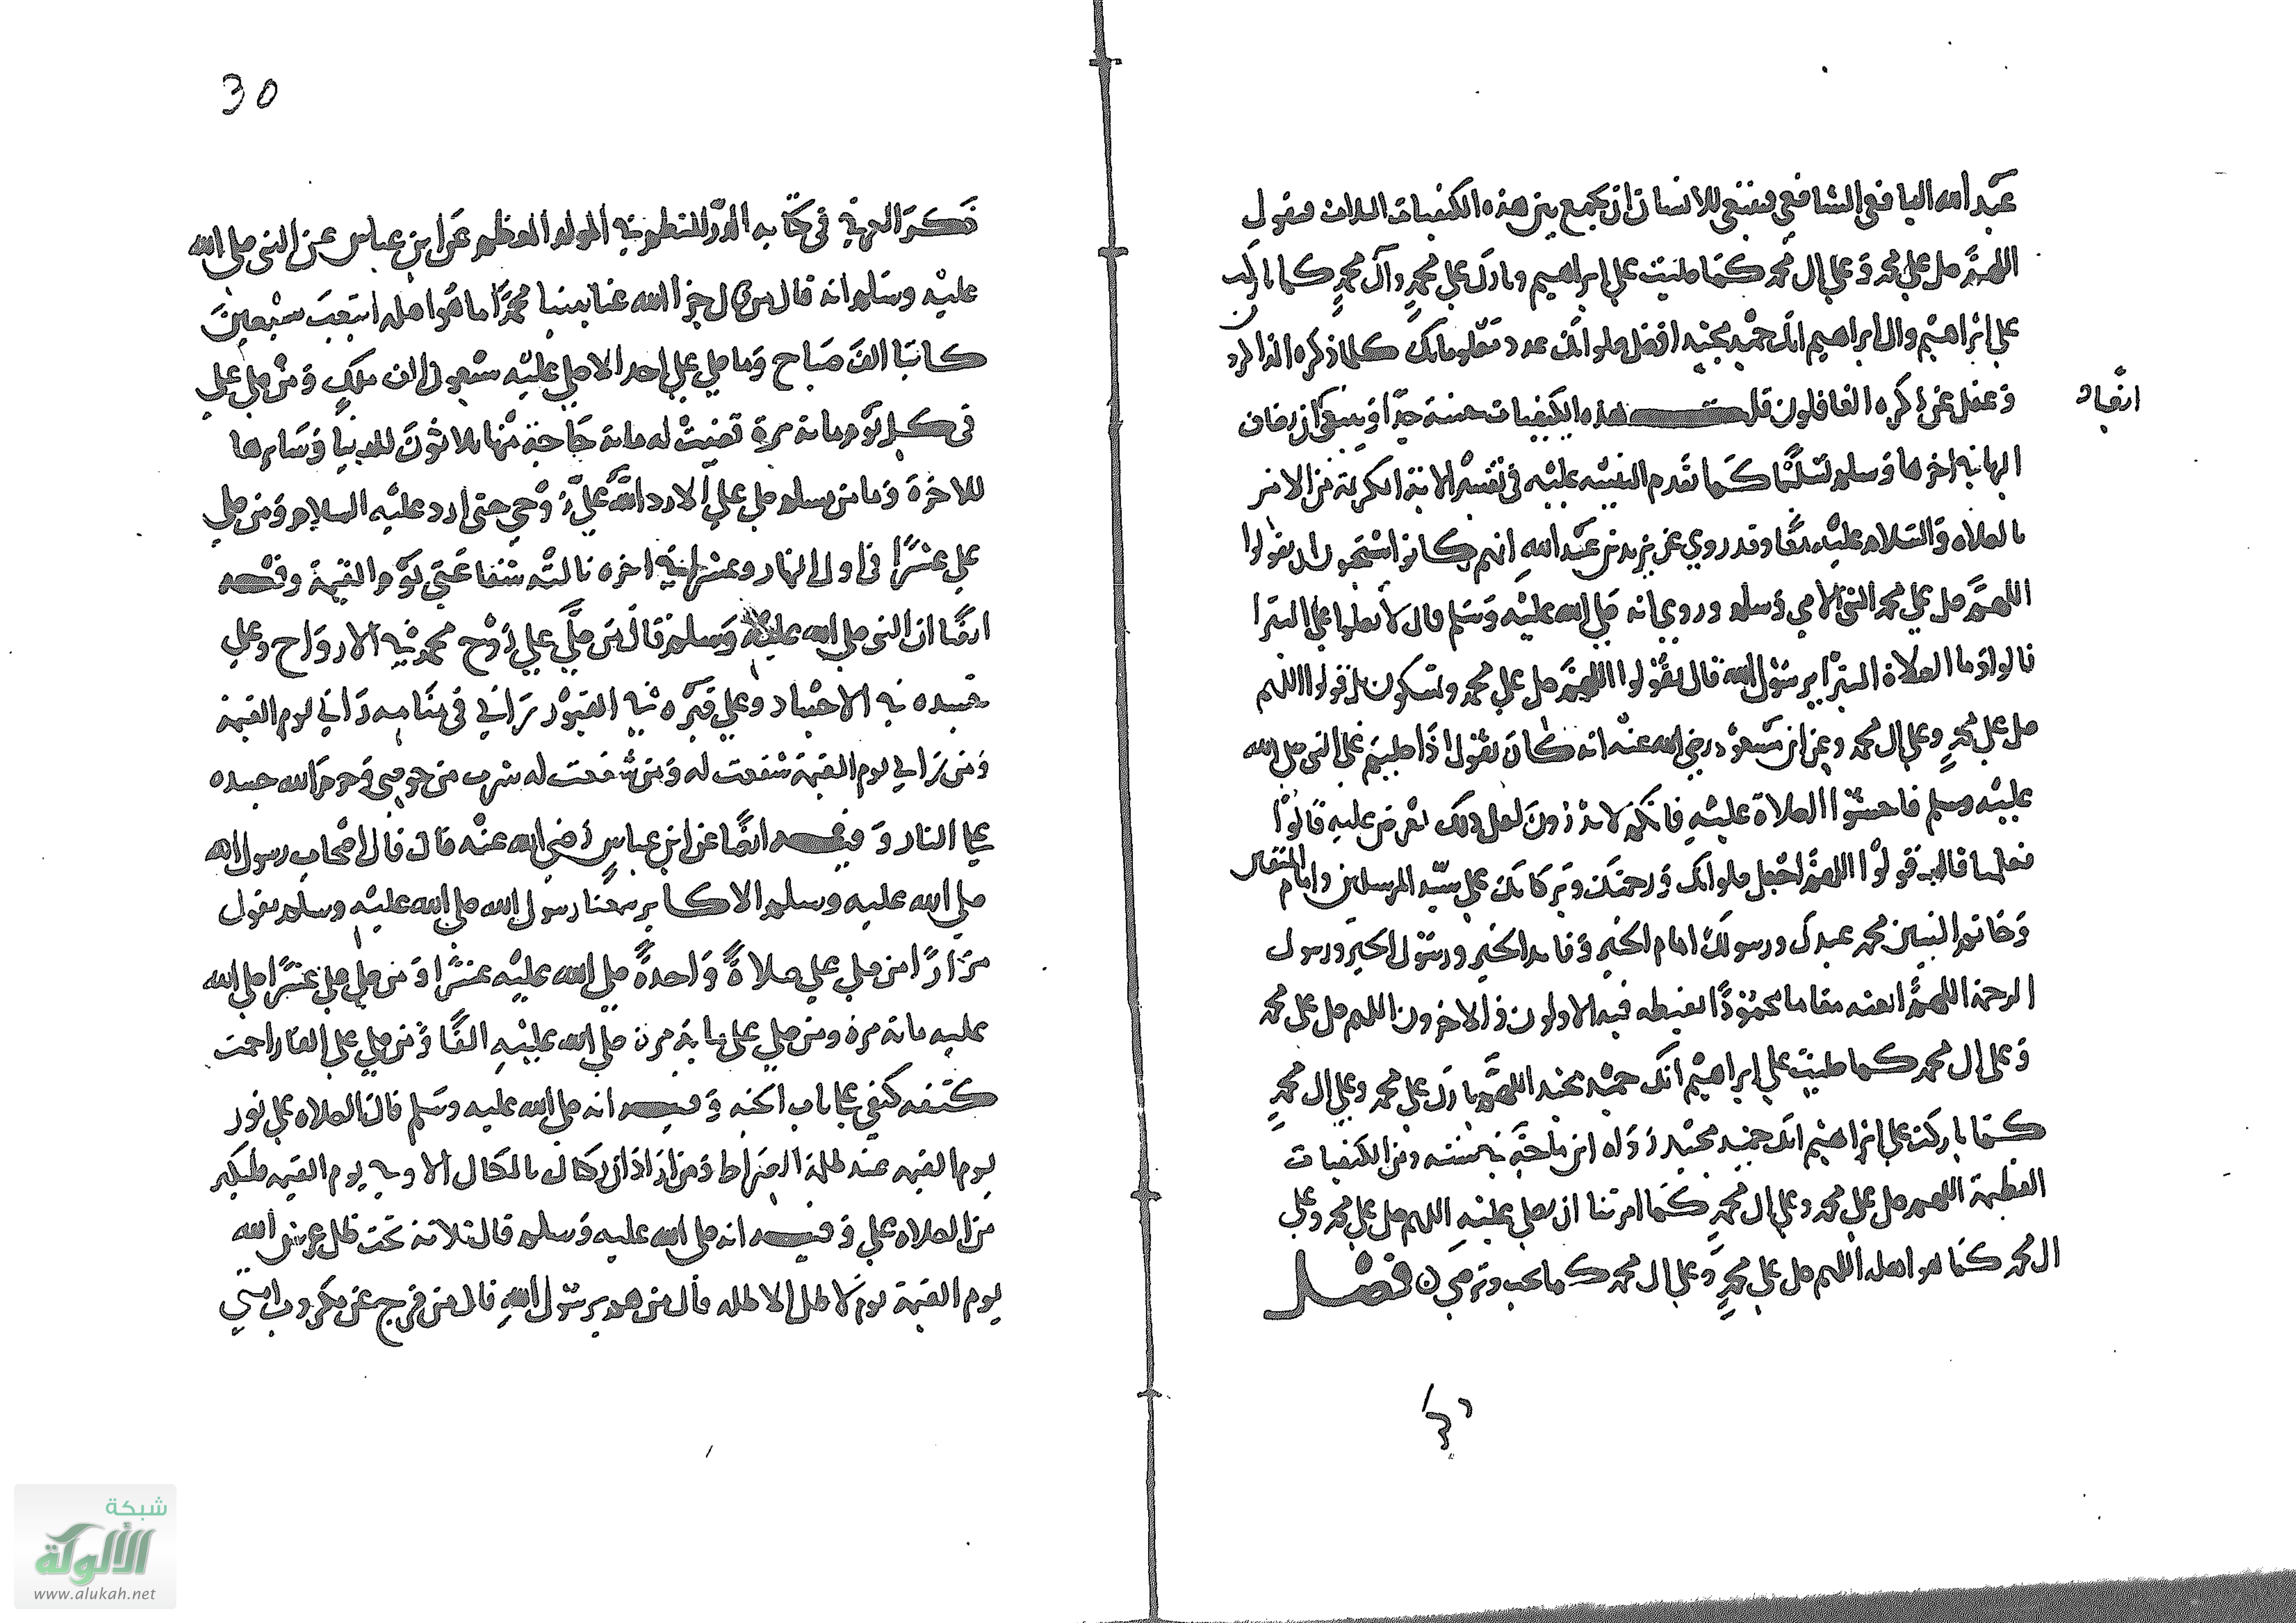 عبد الله اليافعي الشافعي فينبغي للانسان ان يجمع بين هذه الكيفيات الثلاث فيقول
اللهم صل على محمد وعلى ال محمد كما صليت على ابراهيم وبارك على محمد وآل محمد كما باركت
على ابراهيم وال ابراهيم انك حميد مجيد افضل صلواتك عدد معلوماتك كلما ذكره الذاكرون
وغفل عن ذكره الغافلون قلت هذه الكيفيات حسنة جدا وينبغي ان يضاف ايضا
اليها في اخرها وسلم تسليما كما تقدم التنبيه عليه في تفسير الاية الكريمة من الامر
بالصلاه والسلام عليه معا وقد روي عن يزيد بن عبد الله انهم كانوا استحبون ان يقولوا
اللهم صل على محمد النبي الامي وسلم وروي انه صلى الله عليه وسلم قال لا تصلوا علي البترا
قالوا وما الصلاة البترا يرسول الله قال تقولوا اللهم صل على محمد وتسكون بل قولوا اللهم
صل على محمد وعلى ال محمد وعن ابن مسعود رضي الله عنه انه كان يقول اذا صليتم على النبي صلى الله
عليه وسلم فاحسنوا الصلاة عليه فانكم لا تدرون لعل ذلك يعرض عليه قالوا
فعلمنا قال قولوا اللهم اجعل صلواتك ورحمتك وبركاتك على سيد المرسلين وامام المتقين
وخاتم النبيين محمد عبدك ورسولك امام الخير وقايد الخير ورسول الخير ورسول
الرحمة اللهم ابعثه مقاما محمودا يغبطه فيه الاولون والاخرون اللهم صل على محمد
وعلى ال محمد كما صليت على ابراهيم انك حميد مجيد اللهم بارك على محمد وعلى ال محمد
كما باركت على ابراهيم انك حميد مجيد رواه ابن ماجة في سننه ومن الكيفيات
العظيمة اللهم صل على محمد وعلى ال محمد كما امرتنا ان نصلي عليه اللهم صل على محمد وعلى
ال محمد كما هو اهله اللهم صل على محمد وعلى ال محمد كما تحب وترضى ن فصل
30
ذكر العزفي في كتابه الدر المنظم في المولد المعظم عن ابن عباس عن النبي صلى الله
عليه وسلم انه قال من قال جزا الله عنا نبينا محمدا ما هو اهله اتعب سبعين
كاتبا الف صباح وما صلى علي احد الا صلى عليه سبعون الف ملك ومن صلى علي
في كل يوم مائة مرة قضيت له مائة حاجة منها ثلاثون للدنيا وسايرها
للاخرة وما من مسلم صلى علي الا رد الله علي روحي حتى ارد عليه السلام ومن صلى
علي عشرا في اول النهار وعشرا في اخره نالته شفاعتي يوم القيمة وفيه
ايضا ان النبي صلى الله عليه وسلم قال من صلى على روح محمد في الارواح وعلى
جسده في الاجساد وعلى قبره في القبور راني في منامه ومن راني يوم القيمة
ومن راني يوم القيمة شفعت له ومن شفعت له شرب من حوضي وحرم الله جسده
على النار وفيه ايضا عن ابن عباس رضي الله عنه قال قال اصحاب رسول الله
صلى الله عليه وسلم الاكابر سمعنا رسول الله صلى الله عليه وسلم يقول
مرارا من صلى علي صلاة واحدة صلى الله عليه عشرا ومن صلى علي عشرا صلى الله
عليه مائة مرة ومن صلى علي مائة مرة صلى الله عليه الفا ومن صلى علي الفا زاحمت
كتفه كتفي على باب الجنة وفيه انه صلى الله عليه وسلم قال الصلاه علي نور
يوم القيمه عند ظلمة الصراط ومن اراد ان يكال بالمكيال الاوفى يوم القيمه فليكثر
من الصلاه علي وفيه انه صلى الله عليه وسلم قال ثلاثة تحت ظل عرش الله
يوم القيمة يوم لا ظل الا ظله قال من هم يرسول الله قال من فرج عن مكروب امتي
شبكة
الألوكة
www.alukah.net